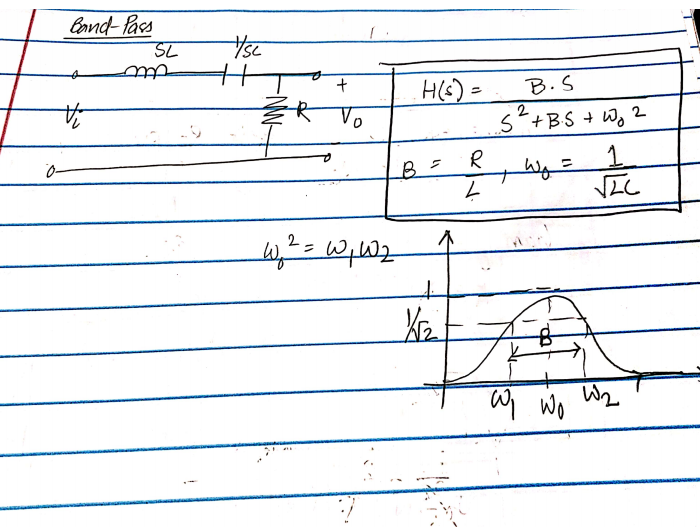 Band-Pass
SL
1/SC
+
Vi
R
Vo
H(s) = B.S / S² + B.S + ω₀²
B = R/L , ω₀ = 1/√LC
ω₀² = ω₁ω₂
1
1/√2
B
ω₁ ω₀ ω₂